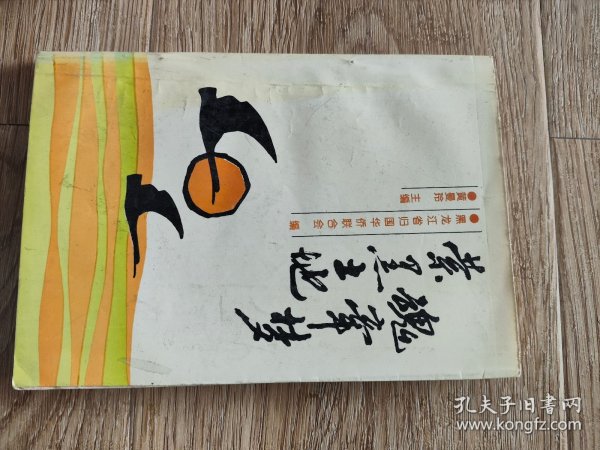 魂牵梦
萦黑土地
●黑龙江省归国华侨联合会 编
●黄曼 主编
孔夫子旧书网
www.kongfz.com